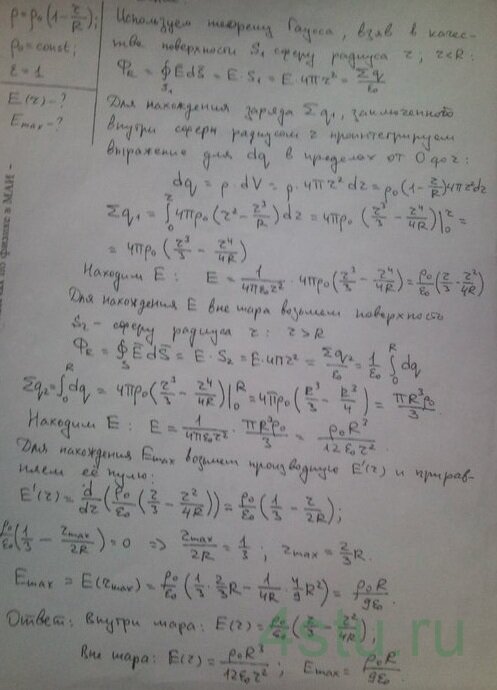 ρ=ρ₀(1-r/R);
ρ₀=const;
ε=1
E(r)-?
Emax-?
Используем теорему Гаусса, взяв в качес-
тве поверхности S₁ сферу радиуса r, r<R:
Φ_E = ∮_{S₁} E̅dS̅ = E·S₁ = E·4πr² = Σq/ε₀
Для нахождения заряда Σq₁, заключенного
внутри сферы радиусом r проинтегрируем
выражение для dq в пределах от 0 до r:
dq = ρ·dV = ρ·4πr²dr = ρ₀(1-r/R)4πr²dr
Σq₁ = ∫₀^r 4πρ₀(r²-r³/R)dr = 4πρ₀(r³/3 - r⁴/4R)|₀^r =
= 4πρ₀(r³/3 - r⁴/4R)
Находим E: E = 1/4πε₀r² · 4πρ₀(r³/3 - r⁴/4R) = ρ₀/ε₀(r/3 - r²/4R)
Для нахождения E вне шара возьмем поверхность
S₂ - сферу радиуса r: r>R
Φ_E = ∮_S E̅dS̅ = E·S₂ = E·4πr² = Σq₂/ε₀ = 1/ε₀ ∫₀^R dq
Σq₂ = ∫₀^R dq = 4πρ₀(r³/3 - r⁴/4R)|₀^R = 4πρ₀(R³/3 - R³/4) = πR³ρ₀/3.
Находим E: E = 1/4πε₀r² · πR³ρ₀/3 = ρ₀R³/12ε₀r².
Для нахождения Emax возьмем производную E'(r) и прирав-
няем её нулю:
E'(r) = d/dr(ρ₀/ε₀(r/3 - r²/4R)) = ρ₀/ε₀(1/3 - r/2R);
ρ₀/ε₀(1/3 - rmax/2R) = 0 => rmax/2R = 1/3; rmax = 2/3R.
Emax = E(rmax) = ρ₀/ε₀(1/3·2/3R - 1/4R·4/9R²) = ρ₀R/9ε₀.
Ответ: Внутри шара: E(r) = ρ₀/ε₀(r/3 - r²/4R);
Вне шара: E(r) = ρ₀R³/12ε₀r²; Emax = ρ₀R/9ε₀.
4stu.ru
по физике в МАИ -